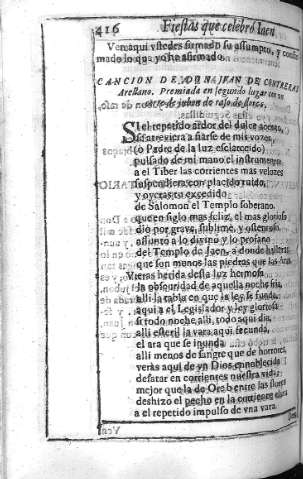 416 Fiestas que celebrò Iaen
Ven aqui vstedes firmado su assumpto, y confir
mado lo que yo he afirmado.
CANCION DE D. IVAN DE CONTRERAS
Arellano. Premiada en segundo lugar con un
corte de jubon de raso de flores.
SI el repetido ardor del dulce acento,
se atreviera a fiarse de mis vozes,
(o Padre de la luz esclarecido)
pulsado de mi mano el instrumento,
a el Tiber las corrientes mas velozes
suspendiera con placido ruido,
y oyeras tu excedido
de Salomon el Templo soberano.
que en siglo mas feliz, el mas glorioso
diò por grave, sublime, y ostentoso
assunto a lo divino, y lo profano
del Templo de Jaen, a donde hallaras
que son menos las piedras que las Aras.
Vieras herida desta luz hermosa
la obscuridad de aquella noche fria,
alli la tabla en que la ley se funda,
aqui a el Legislador y ley gloriosa
si todo noche alli, todo aqui dia,
alli esteril la vara aqui fecunda,
el ara que se inunda
alli menos de sangre que de horrores,
veràs aqui de vn Dios ennoblecida
desatar en corrientes nuestra vida;
mejor que la de Oreb entre las flores
deshizo el pecho en la corriente clara
a el repetido impulso de vna vara.